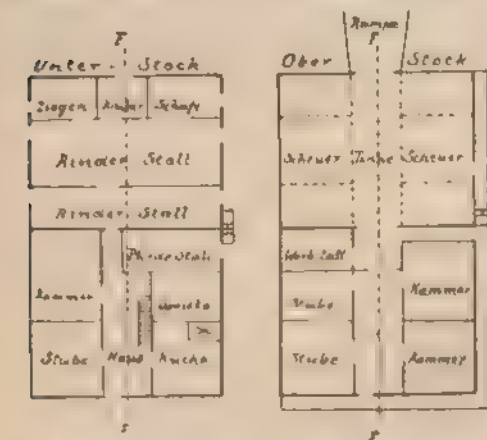 F
Unter - Stock
Ziegen Kälber Schafe
Rinder Stall
Rinder Stall
Pferde Stall
Kammer
Stube Haus Küche
Rampe
F
Ober Stock
Scheuer Tenne Scheuer
Werkstatt
Stube Kammer
Stube Kammer